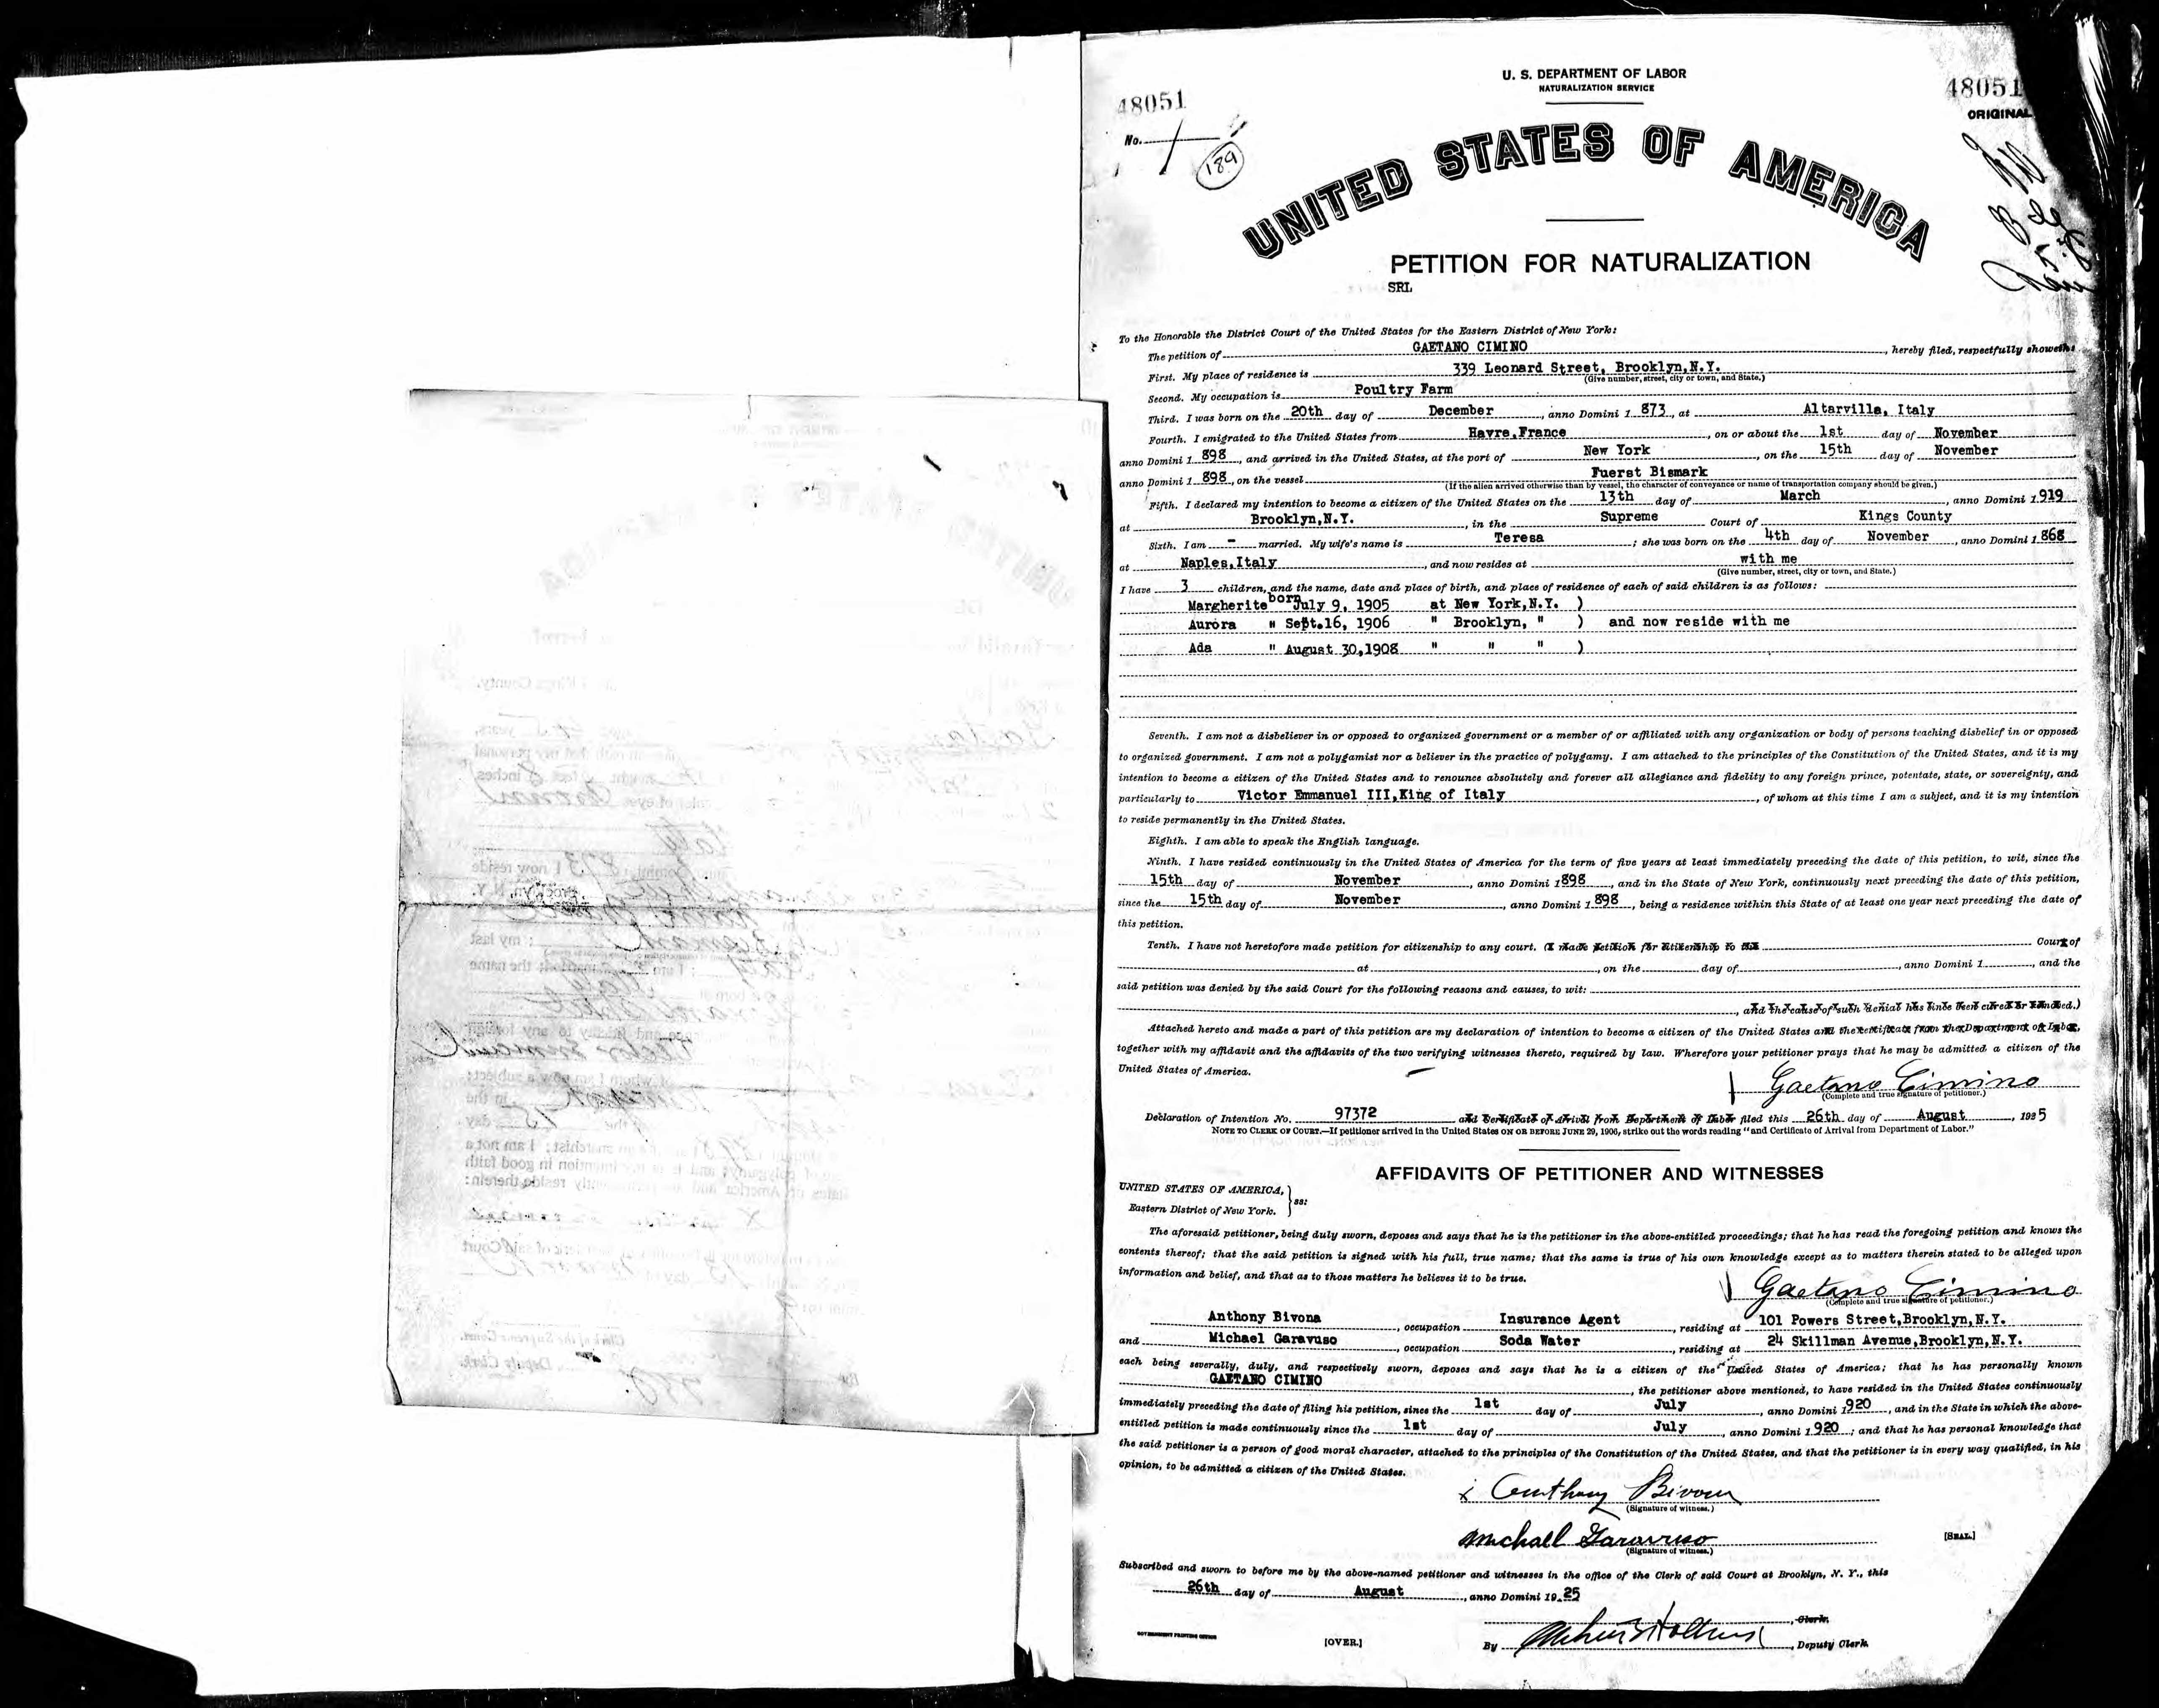 U. S. DEPARTMENT OF LABOR
NATURALIZATION SERVICE
48051
48051
ORIGINAL
No.
189
UNITED STATES OF AMERICA
PETITION FOR NATURALIZATION
SRL
To the Honorable the District Court of the United States for the Eastern District of New York:
The petition of GAETANO CIMINO, hereby filed, respectfully showeth:
First. My place of residence is 339 Leonard Street, Brooklyn,N.Y.
(Give number, street, city or town, and State.)
Second. My occupation is Poultry Farm
Third. I was born on the 20th day of December, anno Domini 1 873, at Altarvilla, Italy
Fourth. I emigrated to the United States from Havre,France, on or about the 1st day of November
anno Domini 1 898, and arrived in the United States, at the port of New York, on the 15th day of November
anno Domini 1 898, on the vessel Fuerst Bismark
(If the alien arrived otherwise than by vessel, the character of conveyance or name of transportation company should be given.)
Fifth. I declared my intention to become a citizen of the United States on the 13th day of March, anno Domini 1 919
at Brooklyn,N.Y., in the Supreme Court of Kings County
Sixth. I am - married. My wife's name is Teresa; she was born on the 4th day of November, anno Domini 1 868
at Naples,Italy, and now resides at with me
(Give number, street, city or town, and State.)
I have 3 children, and the name, date and place of birth, and place of residence of each of said children is as follows:
Margherite born July 9, 1905 at New York,N.Y. )
Aurora " Sept.16, 1906 " Brooklyn, " ) and now reside with me
Ada " August 30,1908 " " " )
Seventh. I am not a disbeliever in or opposed to organized government or a member of or affiliated with any organization or body of persons teaching disbelief in or opposed
to organized government. I am not a polygamist nor a believer in the practice of polygamy. I am attached to the principles of the Constitution of the United States, and it is my
intention to become a citizen of the United States and to renounce absolutely and forever all allegiance and fidelity to any foreign prince, potentate, state, or sovereignty, and
particularly to Victor Emmanuel III,King of Italy, of whom at this time I am a subject, and it is my intention
to reside permanently in the United States.
Eighth. I am able to speak the English language.
Ninth. I have resided continuously in the United States of America for the term of five years at least immediately preceding the date of this petition, to wit, since the
15th day of November, anno Domini 1 898, and in the State of New York, continuously next preceding the date of this petition,
since the 15th day of November, anno Domini 1 898, being a residence within this State of at least one year next preceding the date of
this petition.
Tenth. I have not heretofore made petition for citizenship to any court. (I made petition for citizenship to the Court of
at , on the day of , anno Domini 1 , and the
said petition was denied by the said Court for the following reasons and causes, to wit:
, and the cause of such denial has since been cured or removed.)
Attached hereto and made a part of this petition are my declaration of intention to become a citizen of the United States and the certificate from the Department of Labor,
together with my affidavit and the affidavits of the two verifying witnesses thereto, required by law. Wherefore your petitioner prays that he may be admitted a citizen of the
United States of America.
Gaetano Cimino
(Complete and true signature of petitioner.)
Declaration of Intention No. 97372 and Certificate of Arrival from Department of Labor filed this 26th day of August, 1925
NOTE TO CLERK OF COURT.—If petitioner arrived in the United States ON OR BEFORE JUNE 29, 1906, strike out the words reading "and Certificate of Arrival from Department of Labor."
AFFIDAVITS OF PETITIONER AND WITNESSES
UNITED STATES OF AMERICA,
Eastern District of New York. } ss:
The aforesaid petitioner, being duly sworn, deposes and says that he is the petitioner in the above-entitled proceedings; that he has read the foregoing petition and knows the
contents thereof; that the said petition is signed with his full, true name; that the same is true of his own knowledge except as to matters therein stated to be alleged upon
information and belief, and that as to those matters he believes it to be true.
Gaetano Cimino
(Complete and true signature of petitioner.)
Anthony Bivona, occupation Insurance Agent, residing at 101 Powers Street,Brooklyn,N.Y.
and Michael Garavuso, occupation Soda Water, residing at 24 Skillman Avenue,Brooklyn,N.Y.
each being severally, duly, and respectively sworn, deposes and says that he is a citizen of the United States of America; that he has personally known
GAETANO CIMINO, the petitioner above mentioned, to have resided in the United States continuously
immediately preceding the date of filing his petition, since the 1st day of July, anno Domini 1 920, and in the State in which the above-
entitled petition is made continuously since the 1st day of July, anno Domini 1 920; and that he has personal knowledge that
the said petitioner is a person of good moral character, attached to the principles of the Constitution of the United States, and that the petitioner is in every way qualified, in his
opinion, to be admitted a citizen of the United States.
x Anthony Bivona
(Signature of witness.)
Michael Garavuso
(Signature of witness.)
[SEAL.]
Subscribed and sworn to before me by the above-named petitioner and witnesses in the office of the Clerk of said Court at Brooklyn, N. Y., this
26th day of August, anno Domini 19 25
, Clerk.
GOVERNMENT PRINTING OFFICE
[OVER.]
By , Deputy Clerk.